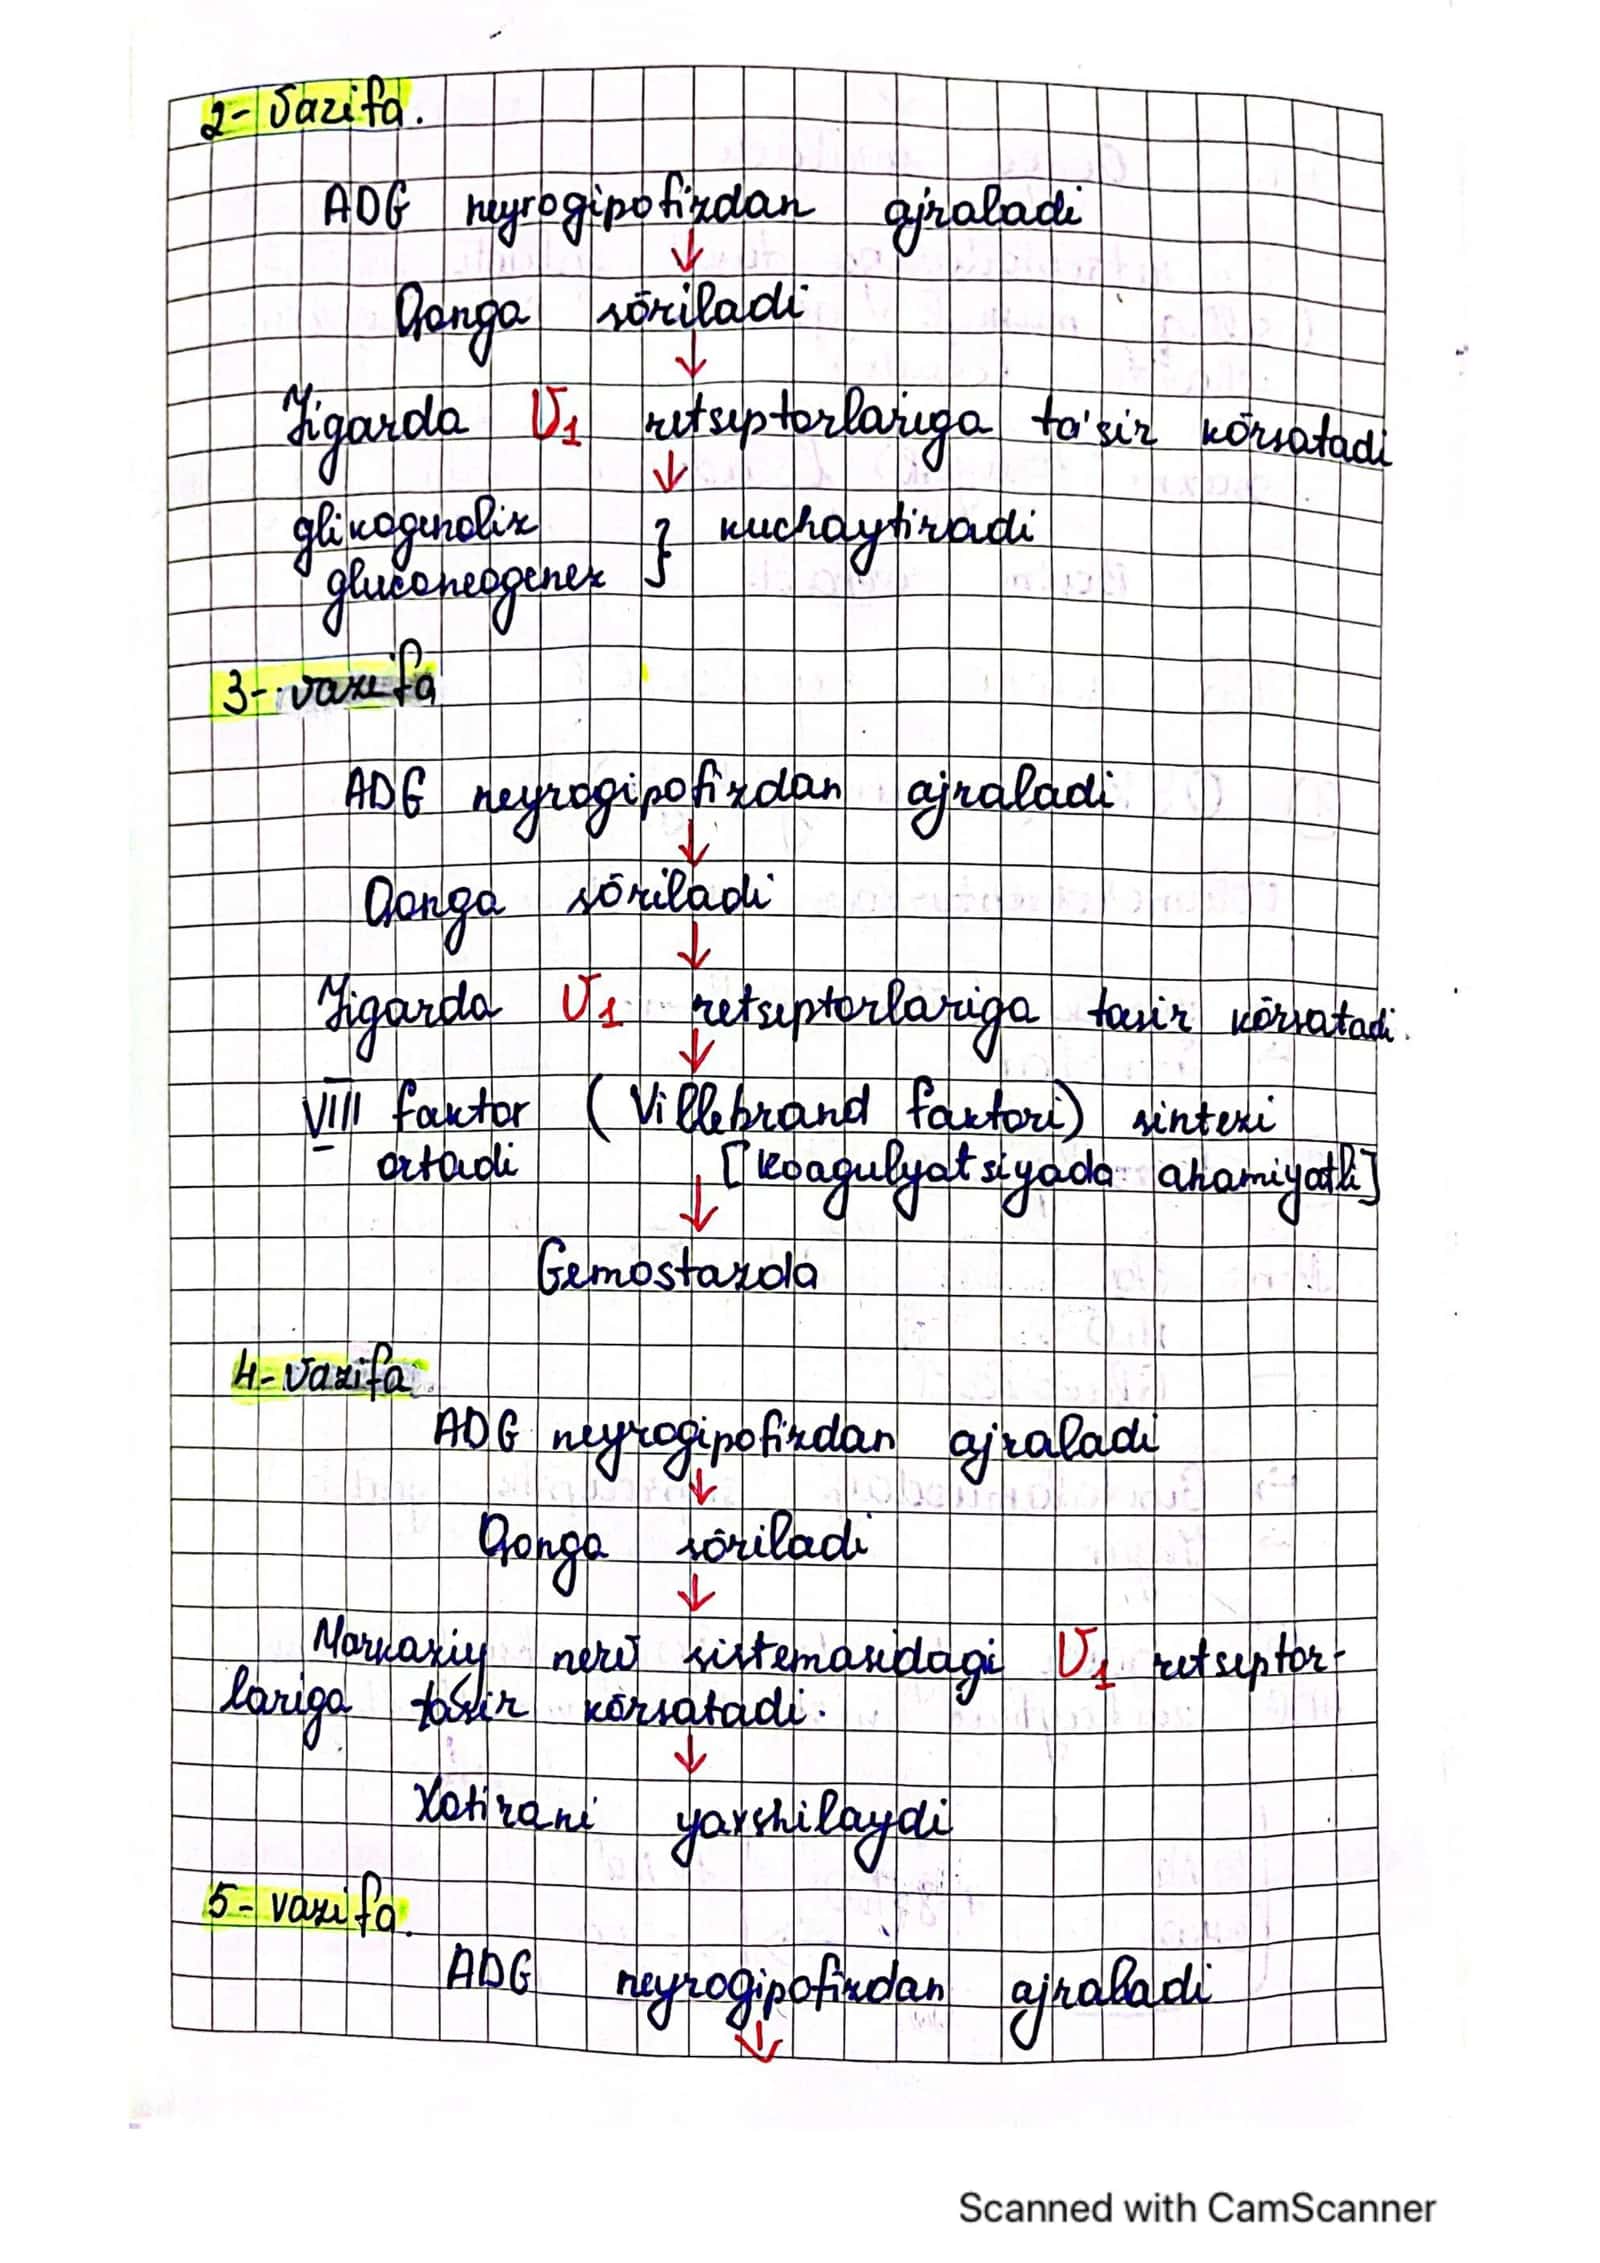 2- Vazifa.
ADG neyrogipofizdan ajraladi
↓
Qonga sōriladi
↓
Jigarda V1 retseptorlariga ta'sir kōrsatadi
↓
glikogenoliz } kuchaytiradi
gluconeogenez
3- vazifa
ADG neyrogipofizdan ajraladi
↓
Qonga sōriladi
↓
Jigarda V1 retseptorlariga tasir kōrsatadi.
↓
VIII faktor (Villebrand faktori) sintezi
ortadi [koagulyatsiyada ahamiyatli]
↓
Gemostazda
4- Vazifa.
ADG neyrogipofizdan ajraladi
↓
Qonga sōriladi
↓
Markaziy nerv sistemasidagi V1 retseptor-
lariga ta'sir kōrsatadi.
↓
Xotirani yaxshilaydi
5- vazifa.
ADG neyrogipofizdan ajraladi
↓
Scanned with CamScanner